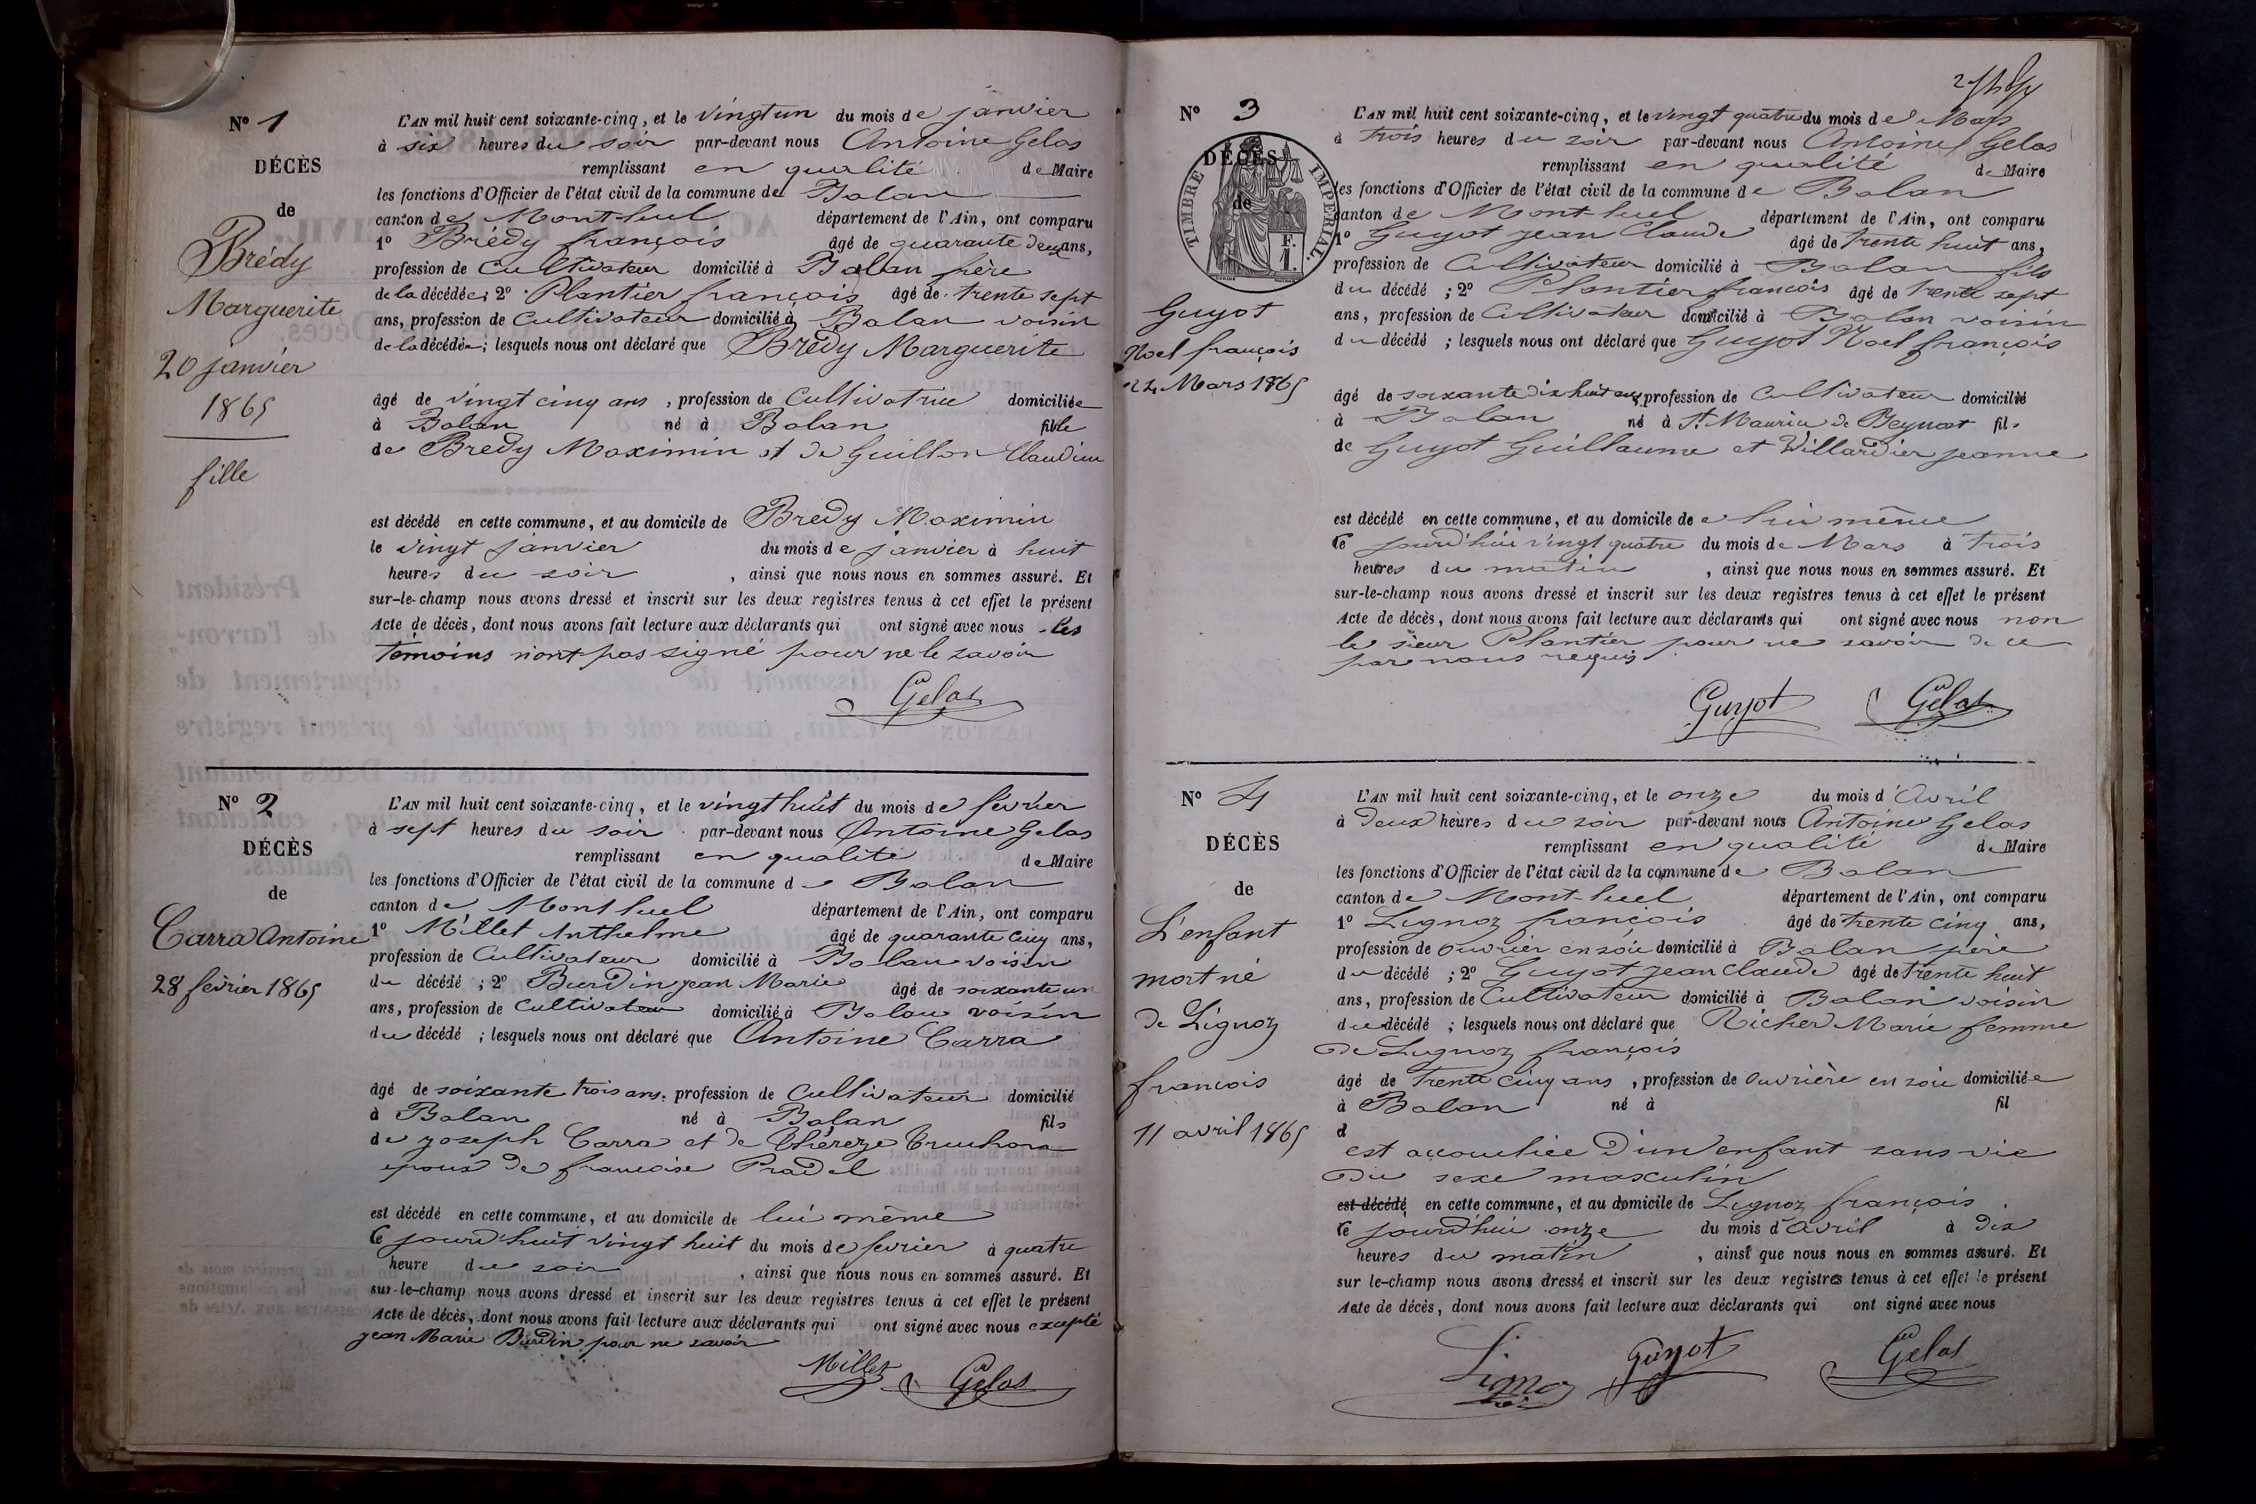 N° 1
DÉCÈS
de
Brédy
Marguerite
20 janvier
1865
fille
L'AN mil huit cent soixante-cinq, et le vingt un du mois de janvier
à six heures du soir par-devant nous Antoine Gelas
remplissant en qualité de Maire
les fonctions d'Officier de l'état civil de la commune de Balan
canton de Montluel département de l'Ain, ont comparu
1° Brédy françois âgé de quarante deux ans,
profession de Cultivateur domicilié à Balan frère
de la décédée; 2° Plantier françois âgé de trente sept
ans, profession de Cultivateur domicilié à Balan voisin
de la décédée; lesquels nous ont déclaré que Brédy Marguerite
âgé de vingt cinq ans, profession de Cultivatrice domiciliée
à Balan né à Balan fille
de Bredy Maximin et de Guillon Claudine
est décédé en cette commune, et au domicile de Bredy Maximin
le vingt janvier du mois de janvier à huit
heures du soir, ainsi que nous nous en sommes assuré. Et
sur-le-champ nous avons dressé et inscrit sur les deux registres tenus à cet effet le présent
Acte de décès, dont nous avons fait lecture aux déclarants qui ont signé avec nous les
témoins n'ont pas signé pour ne le savoir
Gelas
N° 2
DÉCÈS
de
Carra Antoine
28 février 1865
L'AN mil huit cent soixante-cinq, et le vingt huit du mois de février
à sept heures du soir par-devant nous Antoine Gelas
remplissant en qualité de Maire
les fonctions d'Officier de l'état civil de la commune de Balan
canton de Montluel département de l'Ain, ont comparu
1° Millet Anthelme âgé de quarante cinq ans,
profession de Cultivateur domicilié à Balan voisin
du décédé; 2° Burdin jean Marie âgé de soixante un
ans, profession de Cultivateur domicilié à Balan voisin
du décédé; lesquels nous ont déclaré que Antoine Carra
âgé de soixante trois ans, profession de Cultivateur domicilié
à Balan né à Balan fils
de joseph Carra et de Thérèze
époux de francoise Pradel
est décédé en cette commune, et au domicile de lui même
Ce jourd'huit vingt huit du mois de fevrier à quatre
heure du soir, ainsi que nous nous en sommes assuré. Et
sur-le-champ nous avons dressé et inscrit sur les deux registres tenus à cet effet le présent
Acte de décès, dont nous avons fait lecture aux déclarants qui ont signé avec nous excepté
jean Marie Burdin pour ne savoir
Millet Gelas
N° 3
DÉCÈS
de
TIMBRE IMPÉRIAL
F.
1.
Guyot
Noel françois
24 Mars 1865
L'AN mil huit cent soixante-cinq, et le vingt quatre du mois de Mars
à trois heures du soir par-devant nous Antoine Gelas
remplissant en qualité de Maire
les fonctions d'Officier de l'état civil de la commune de Balan
canton de Montluel département de l'Ain, ont comparu
1° Guyot jean Claude âgé de trente huit ans,
profession de Cultivateur domicilié à Balan fils
du décédé; 2° Plantier françois âgé de trente sept
ans, profession de Cultivateur domicilié à Balan voisin
du décédé; lesquels nous ont déclaré que Guyot Noel françois
âgé de soixante dix huit ans, profession de Cultivateur domicilié
à Balan né à St. Maurice de Beynost fils
de Guyot Guillaume et Villardier jeanne
est décédé en cette commune, et au domicile de lui même
Ce jourd'hui vingt quatre du mois de Mars à trois
heures du matin, ainsi que nous nous en sommes assuré. Et
sur-le-champ nous avons dressé et inscrit sur les deux registres tenus à cet effet le présent
Acte de décès, dont nous avons fait lecture aux déclarants qui ont signé avec nous non
le sieur Plantier pour ne savoir de ce
par nous requis
Guyot Gelas
N° 4
DÉCÈS
de
L'enfant
mort né
de Lignoz
francois
11 avril 1865
L'AN mil huit cent soixante-cinq, et le onze du mois d'Avril
à deux heures du soir par-devant nous Antoine Gelas
remplissant en qualité de Maire
les fonctions d'Officier de l'état civil de la commune de Balan
canton de Montluel département de l'Ain, ont comparu
1° Lignoz françois âgé de trente cinq ans,
profession de ouvrier en soie domicilié à Balan père
du décédé; 2° Guyot jean Claude âgé de trente huit
ans, profession de Cultivateur domicilié à Balan voisin
du décédé; lesquels nous ont déclaré que Richer Marie femme
de Lignoz françois
âgé de trente cinq ans, profession de ouvrière en soie domiciliée
à Balan né à fil
d
est accouchée d'un enfant sans vie
du sexe masculin
est décédé en cette commune, et au domicile de Lignoz françois
Ce jourd'hui onze du mois d'avril à dix
heures du matin, ainsi que nous nous en sommes assuré. Et
sur le-champ nous avons dressé et inscrit sur les deux registres tenus à cet effet le présent
Acte de décès, dont nous avons fait lecture aux déclarants qui ont signé avec nous
Lignoz Guyot Gelas